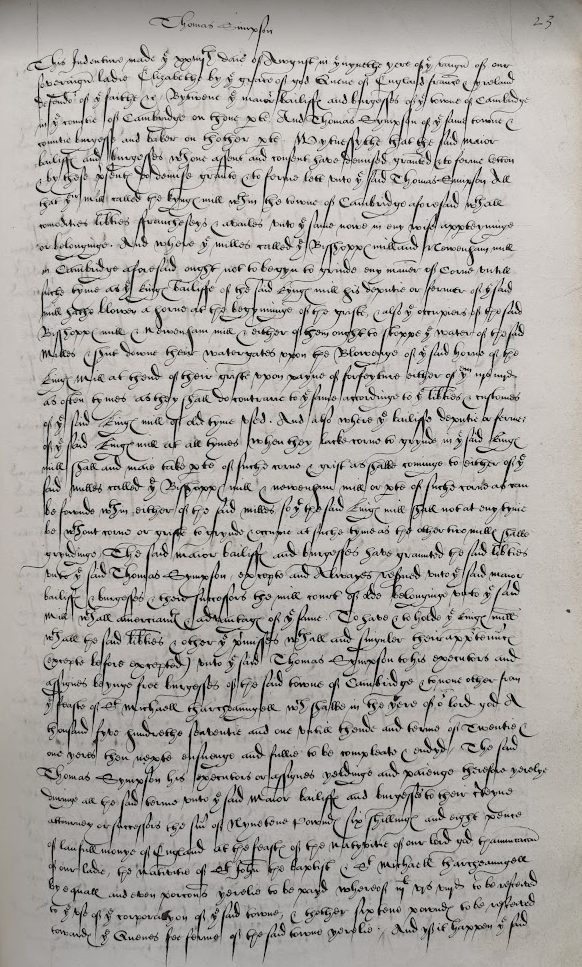 Thomas Simpson
23
This Indenture made ye xxviijth daie of August in ye nynthe yere of ye raign of our
soveraign ladie Elizabethe by ye grace of god Quene of England fraunce & yreland
defendor of ye faithe &c Bytwene ye maior bailiffs and burgesses of ye towne of Cambridge
in ye countie of Cambridge on thone pte And Thomas Sympson of ye same towne &
countie burgesse and baker on thother pte Wytnessythe that the said maior
bailiffs and burgesses of one assent and consent have demised graunted & to ferme letton
& by these psents do demise graunte & to ferme lett unto ye said Thomas Sympson All
that yr mill called the kyngs mill wthin the towne of Cambridge aforesaid wth all
comodities libties fraunchesyes & availes unto ye same nowe in eny wise apperteyninge
or belonginge. And where ye milles called ye Bisshopps mill and Newenham mill
in Cambridge aforesaid ought not to begyn to grinde eny maner of Corne untill
suche tyme as ye kings bailiffe of the said kyngs mill his deputie or fermer of ye said
mill hathe blower a horne at the begynninge of the griste, & also ye occupiers of the said
Bisshopps mill & Newenham mill & either of them ought to stoppe ye water of the said
Milles & shut downe their watergates uppon the Blowenge of ye said horne of the
kings mill at thende of their griste uppon payne of forfeyture either of ym
as often tymes as they shall do contrarie to ye same accordinge to ye libties & customes
of ye said kings mill of olde tyme used. And also where ye bailiffe deputie or fermer
of ye said kings mill at all tymes when they lacke corne to grynde in ye said kings
mill shall and maie take pte of suche corne & grist as shalbe comynge to either of ye
said milles called ye Bisshopps mill & newenham mill or pte of suche corne as can
be founde wthin either of the said milles so yt the said kings mill shall not at eny tyme
be wthout corne or griste to grynde & occupie at suche tyme as the other two mills shalbe
gryndinge. The said maior bailiffs and burgesses have graunted the said libties
unto ye said Thomas Sympson, excepte and Alwayes resvied unto ye said maior
bailiffs & burgesses & their successors the mill court of olde belonginge unto ye said
Mill wth all amerciamts & advantags of ye same. To have & to holde ye kings mill
wth all the said libties & other ye pmisses wth all and singuler their apptennts
(excepte before excepted) unto ye said Thomas Sympson to his executors and
assignes beynge free burgesses of the said towne of Cambridge & to none other from
ye feaste of St Michaell tharchaungell wch shalbe in the yere of or lord god A
thousand fyve hundrethe seaventie and one untill thende and terme of Twentie &
one yeres then nexte ensuenge and fullie to be compleate & endyd. The said
Thomas Sympson his executors or assignes yeldinge and paienge therefore yerelye
duringe all the said terme unto ye said Maior bailiffs and burgesses to their
attorney or successors the sum of Nynetene Pownds six shillings and eight pence
of laufull moneye of England at the feasts of the Natyvitie of our lord god thannunciacon
of our ladie, the nativitie of St John the Baptist & St Michaell tharchaungell
by equall and even porcons yerelie to be payd whereof iijli vjs viijd to be referred
to ye use of ye corporacon of ye said towne, & thother sixtene pownds to be referred
towards ye Quenes fee ferme of the said towne yerelie. And if it happen ye said